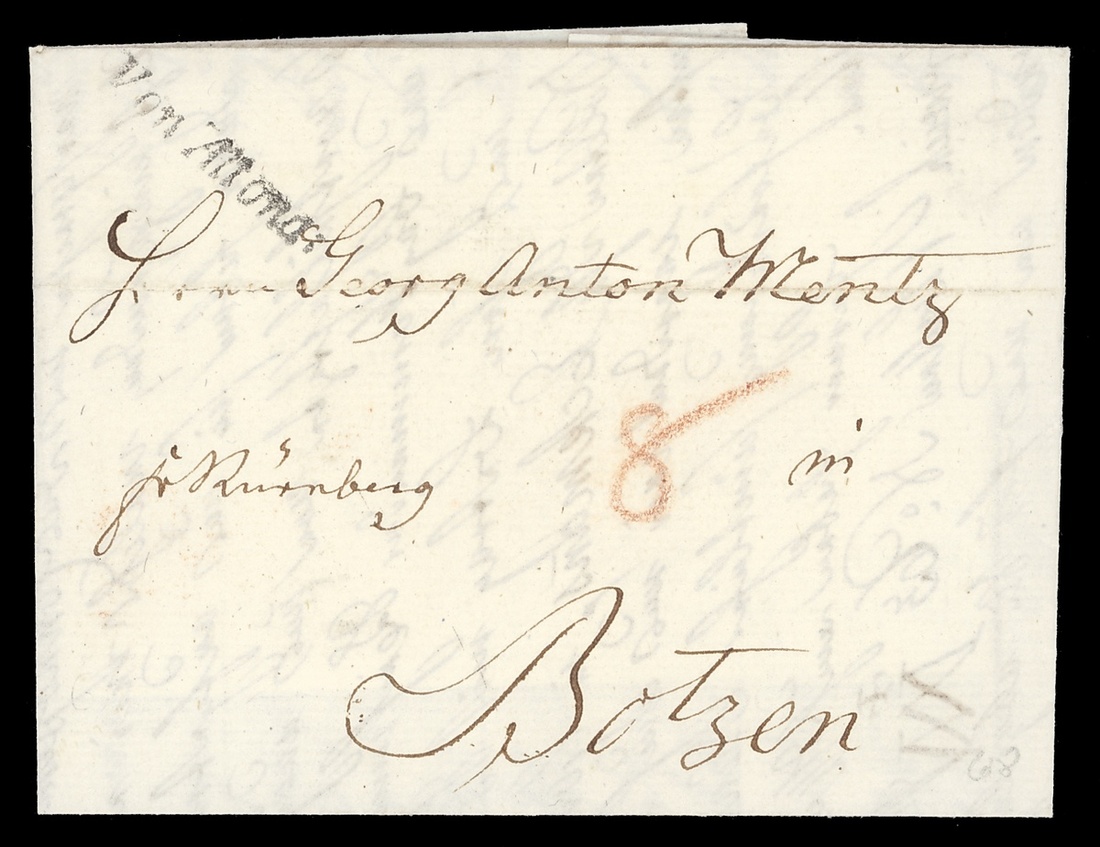 Von Mona:
Herrn Georg Anton Mentz
fr Nürnberg
8
in
Botzen
68